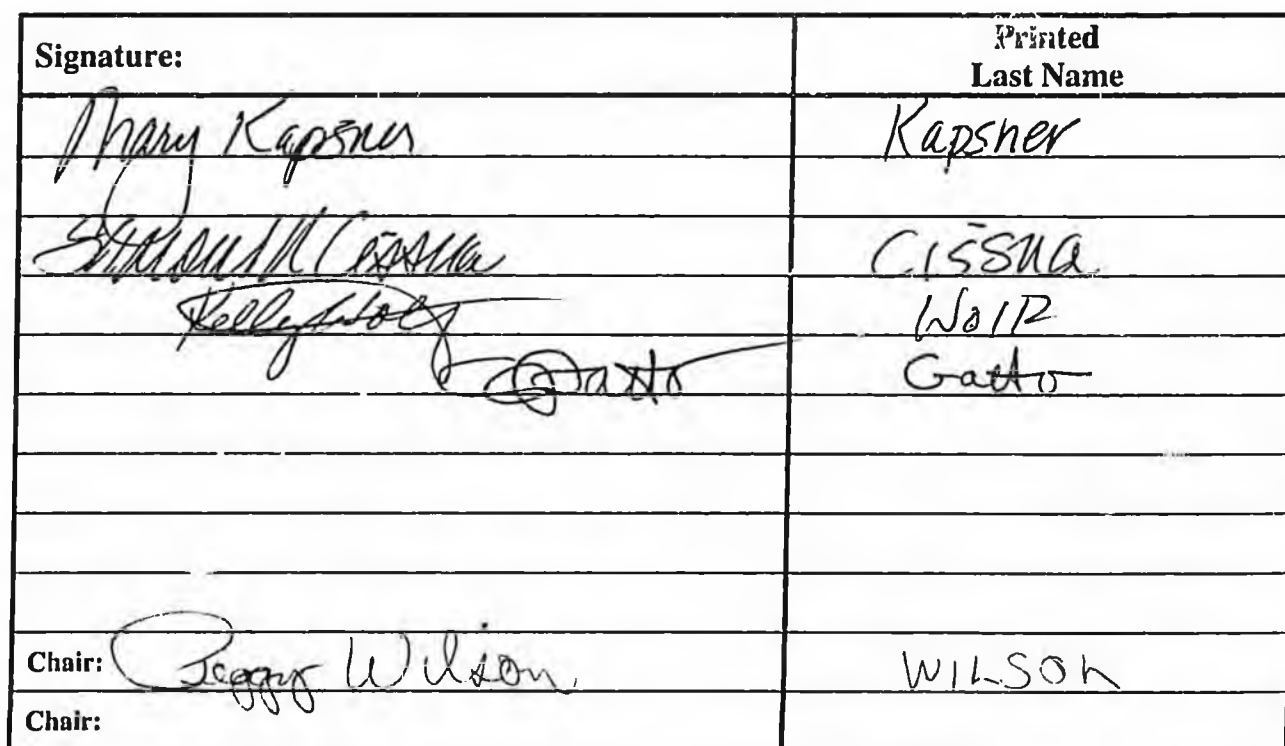 Signature: Printed
Last Name
Mary Kapsner Kapsner
Cissna Cissna
Kelly Wolf Wolf
Gatto Gatto
Chair: Peggy Wilson WILSON
Chair: